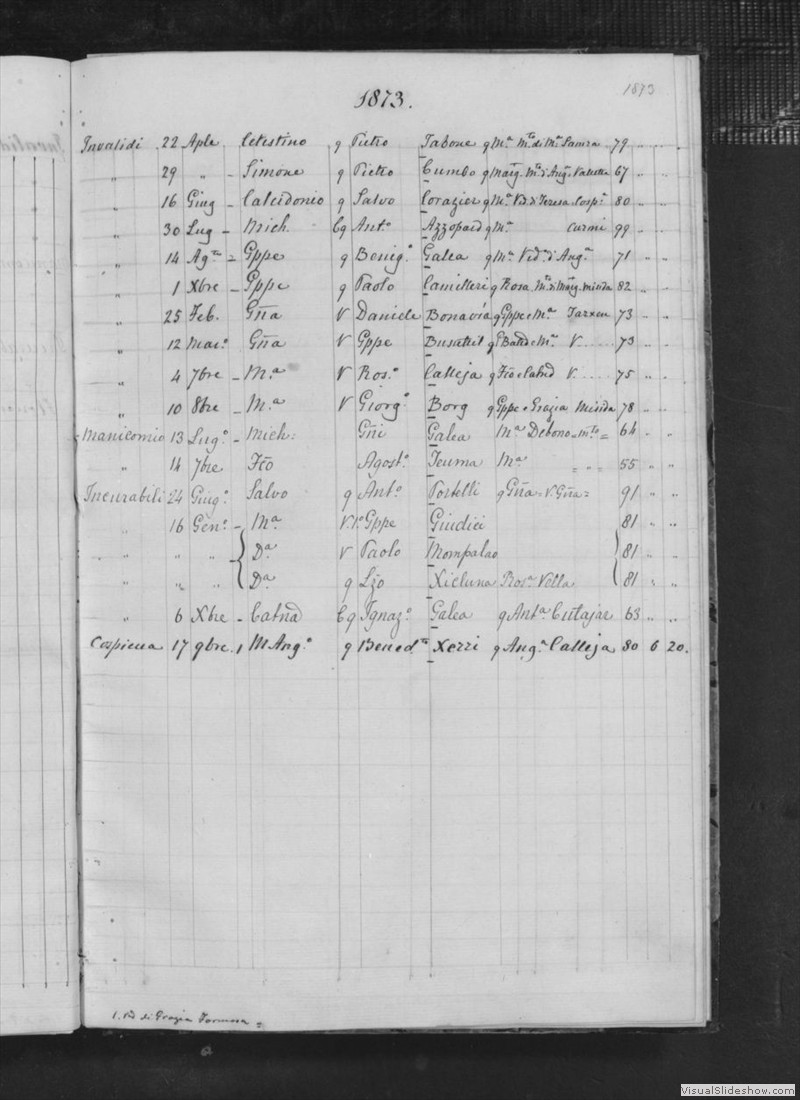 1873.
1873
Invalidi 22 Aple Celestino q Pietro Tabone q Mª Mto di Mª Samra 79 " "
" 29 " - Simone q Pietro Cumbo q Marg. Mto d' Ang. Valletta 67
" 16 Giug - Calcidonio q Salvo Corazier q Mª Vdo di Teresa Cospª 80 " "
" 30 Lug - Mich. Cq Antº Azzopard q Mª Curmi 99 " "
" 14 Agto = Gppe q Benigº Galea q Mª Vido d' Angª 71 " "
" 1 Xbre - Gppe q Paolo Camilleri q Rosa Mto di Marg. Misida 82 " "
" 25 Feb. Gña V Daniele Bonavia q Gppe e Mª Tarxen 73 " "
" 12 Marº Gña V Gppe Busuttil q Batta e Mª V..... 73 " "
" 4 7bre - Mª V Rosº Calleja q Fcõ e Catnã V..... 75 " "
" 10 8bre - Mª V Giorgº Borg q Gppe e Grazia Misida 78 " "
Manicomio 13 Lugº - Mich: Gñi Galea Mª Debono = mto = 64 " "
" 14 7bre Fcõ Agostº Teuma Mª = " = 55 " "
Incurabili 24 Giugº Salvo q Antº Portelli q Gña = V. Gña = 91 " "
" 16 Genº - Mª V. 1º Gppe Giudici 81 " "
" " " Dª V Paolo Mompalao 81 " "
" " " Dª q Lzo Xicluna Rosª Vella 81 " "
" 6 Xbre - Catnã Cq Ignazº Galea q Antª Cutajar 63 " "
Cospicua 17 9bre. 1 M Angº q Benedto Xerri q Angª Calleja 80 6 20.
1. Vdo di Grazia Formosa =
VisualSlideshow.com